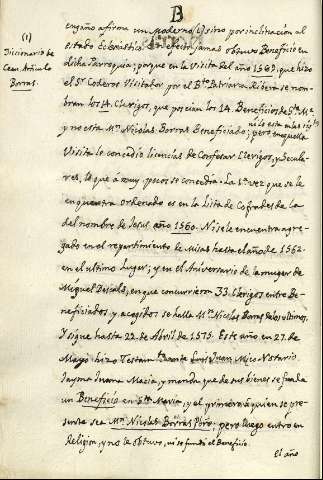 B
(1)
Diccionario de
Cean Artículo
Borras.
engaño afirma un Moderno (1) sino por inclinacion al
estado Eclesiastico. En efecto jamas obtuvo Beneficio en
dicha Parroquia; porque en la Visita del año 1569, que hizo
el Sr. Cordero Visitador por el Bto. Patriarca Ribera se nom-
bran los 14. Clerigos, que poseian los 14. Beneficios de Sta. Ma.
ni lo esta en las
y no esta Mn. Nicolas Borras Beneficiado; pero en aquella
Visita le concedio licencias de Confesar Clerigos, y Secula-
res, lo que á muy pocos se concedia. La 1a. vez que se le
encuentra ordenado es en la Lista de Cofrades de la
del nombre de Jesus año 1560. Ni se le encuentra agre-
gado en el repartimiento de Misas hasta el año de 1562.
en el ultimo lugar; y en el Aniversario de la muger de
Miguel Descals, en que concurrieron 33. Clerigos entre Be-
neficiados y acogidos se halla Mn. Nicolas Borras de los ultimos.
Y sigue hasta 22. de Abril de 1575. Este año en 27. de
Mayo hizo Testamto. ante Luis Juan Mico Notario
Jayme Juana Macia, y manda que de sus bienes se funde
un Beneficio en Sta. Maria, y el primero á quien se pre-
sente sea Mn. Nicolas Borras Pbro; pero luego entro en
Religion, y no le obtuvo, ni se fundó el Beneficio.
El año